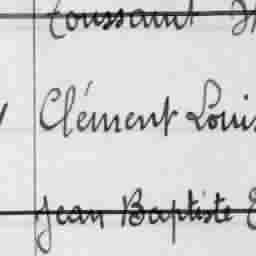 Toussaint
Clément Louis
Jean Baptiste